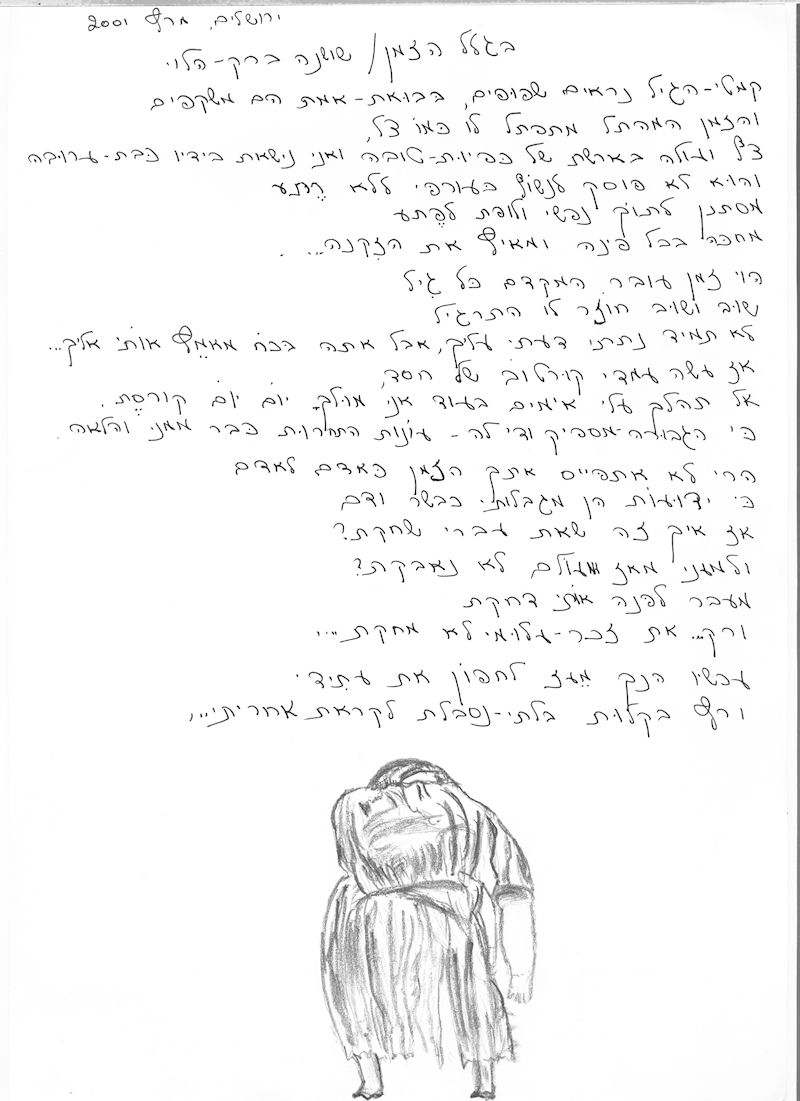 ירושלים, מרץ 2001
בגלל הזמן / שושנה ברק-הלוי
קמטי-הגיל נראים שפופים, בבואת-אמת הם משקפים
והזמן המהתל מתפתל לו כמו צל,
צץ ועולה בארשת של כפיות-טובה ואני נישאת בידיו כבת-ערובה
והוא לא פוסק לנשוף בעורפי ללא רֶתע
מסתנן לתוך נפשי ולופת לפֶתע
מחכה בכל פינה ומאיץ את הזִקנה... .
הוי זמן עובר המקדם כל גיל
שוב ושוב חוזר לו התרגיל
לא תמיד נתתי דעתי עליך, אבל אתה בכח מאמץ אותי אליך...
אז עשה עמדי קורטוב של חסד,
אל תהלך עלי אימים בעוד אני מולך יום יום קורסֶת.
כי הגבורה מספיק ודי לה - עינות התחרות כבר ממני והלאה.
הרי לא אתפייס אתך הזמן כאדם לאדם
כי ידועות הן מגבלותי כבשר ודם
אז איך זה שאת עברי שחקת?
ולמעני מאז ומעולם לא נאבקת?
מעבר לפנה אותי דחקת
ורק... את זכר-עלומי לא מחקת...
עכשיו הנך מֵעז לחפון את עתידי
ורץ בקלות בלתי-נסבלת לקראת אחריתי...